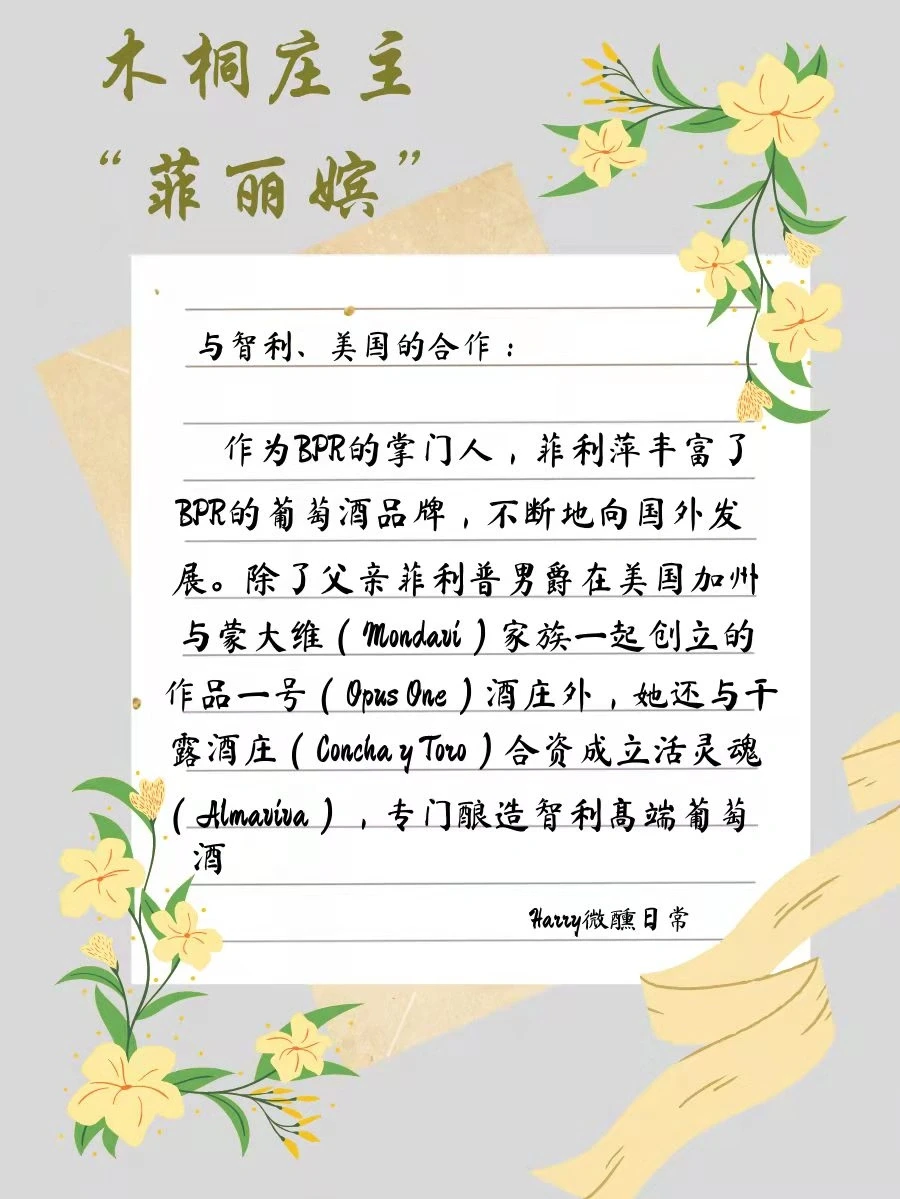 木桐庄主
“菲丽嫔”
与智利、美国的合作：
作为BPR的掌门人，菲利萍丰富了
BPR的葡萄酒品牌，不断地向国外发
展。除了父亲菲利普男爵在美国加州
与蒙大维（Mondavi）家族一起创立的
作品一号（Opus One）酒庄外，她还与干
露酒庄（Concha y Toro）合资成立活灵魂
（Almaviva），专门酿造智利高端葡萄
酒
Harry微醺日常